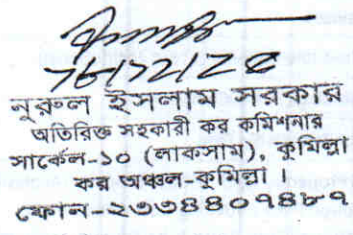 নুরুল ইসলাম সরকার
অতিরিক্ত সহকারী কর কমিশনার
সার্কেল-১০ (লাকসাম), কুমিল্লা
কর অঞ্চল-কুমিল্লা ।
ফোন-২৩৩৪৪০৭৪৮৭